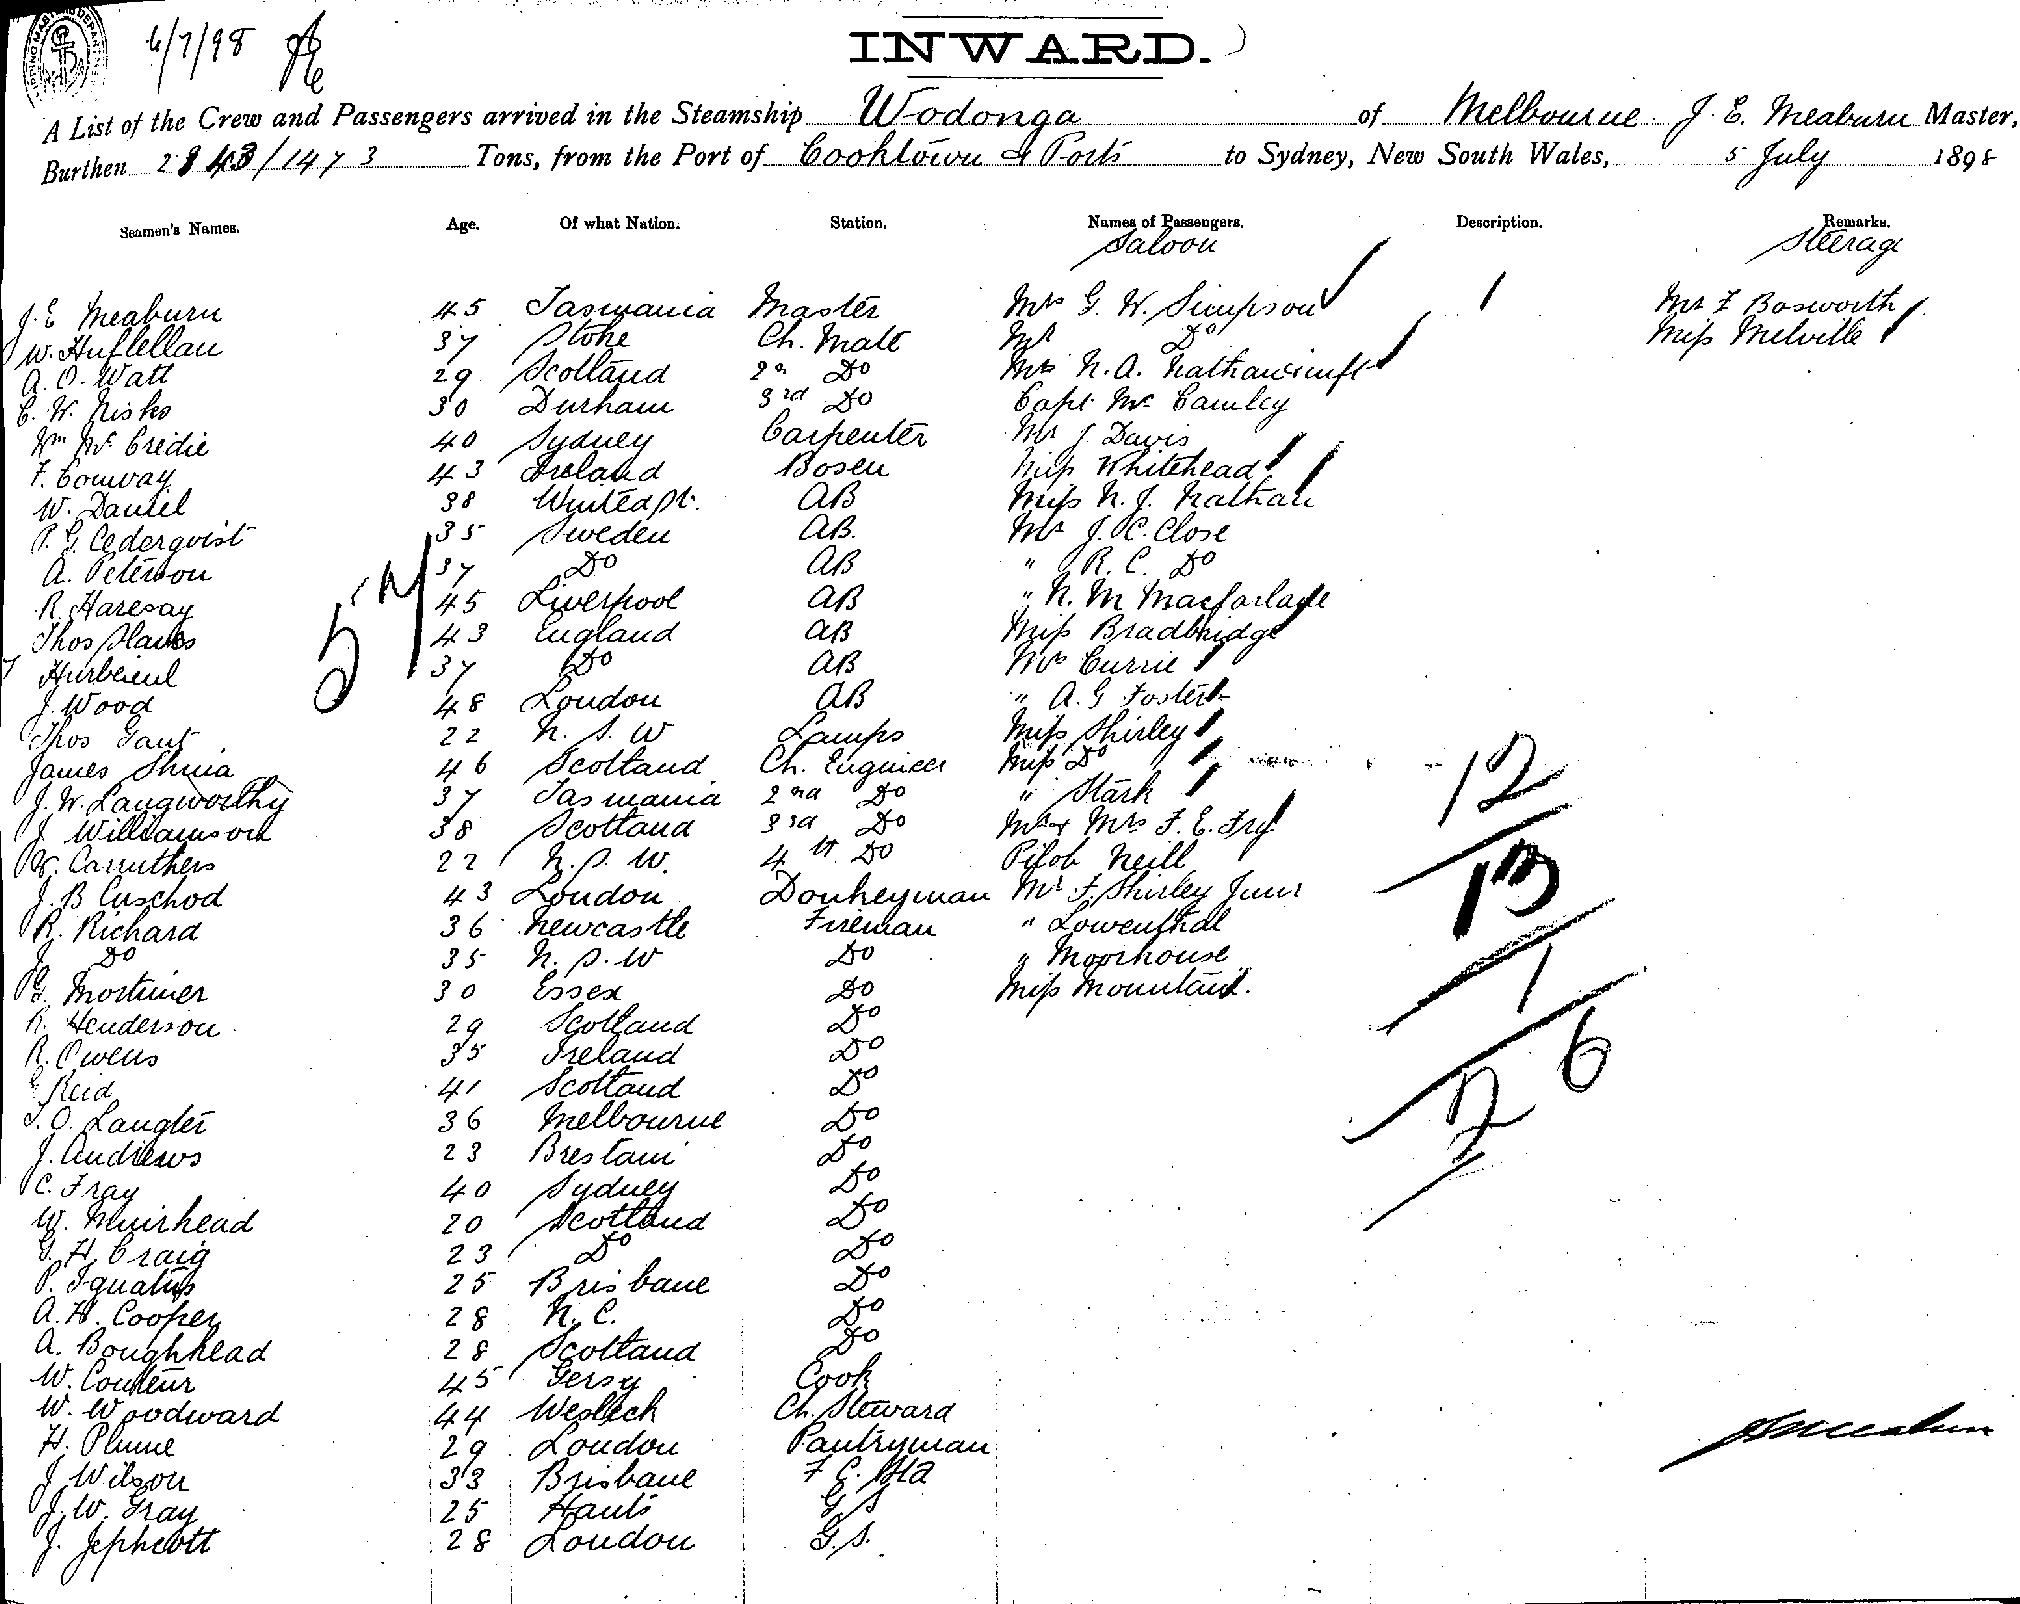 6/7/98
INWARD.
A List of the Crew and Passengers arrived in the Steamship Wodonga of Melbourne J. E. Meaburn Master,
Burthen 2843/1473 Tons, from the Port of Cooktown & Ports to Sydney, New South Wales, 5 July 1898
Seamen's Names. Age. Of what Nation. Station. Names of Passengers. Description. Remarks.
Saloon Steerage
J. E Meaburn 45 Tasmania Master Mrs G. W. Simpson 1 Mr F Bosworth
W. 37 Stoke Ch. Mate Mr Do Miss Melville
A. O. Watt 29 Scotland 2nd Do Mrs N. A.
C. W. Risks 30 Durham 3rd Do Capt Mc Camley
Wm Mc Credie 40 Sydney Carpenter Mr J Davis
F. Conway 43 Ireland Bosen Miss Whitehead
W. Daniel 38 AB Miss N. J. Nathan
P. G. Cederqvist 35 Sweden AB. Mr J. C. Close
A. Peterson 37 Do AB " R. C. Do
R. Haresay 45 Liverpool AB " N. M Macfarlane
Thos 43 England AB Miss Bradbridge
37 Do AB Mrs Currie
J. Wood 48 London AB " A. G Foster
Thos Gant 22 N. S. W Lamps Miss Shirley
James 46 Scotland Ch. Engineer Miss Do
J. W. Langworthy 37 Tasmania 2nd Do " Stark
J Williamson 38 Scotland 3rd Do Mr & Mrs F. E. Fry
W. Carruthers 22 N. S. W. 4th Do Pilot Neill
J. B Cuschod 43 London Donkeyman Mr F. Shirley Junr
R. Richard 36 Newcastle Fireman " Lowenthal
J. Do 35 N. S. W Do " Moorhouse
Mortimer 30 Essex Do Miss Mountain.
R. Henderson 29 Scotland Do
R. Owens 35 Ireland Do
Reid 41 Scotland Do
T. O. Langler 36 Melbourne Do
J. Andrews 23 Do
C. Fray 40 Sydney Do
W. Muirhead 20 Scotland Do
G. H. Craig 23 Do Do
P. Ignatius 25 Brisbane Do
A. H. Cooper 28 N. C. Do
A. Boughhead 28 Scotland Do
W. Couteur 45 Gersy Cook
W. Woodward 44 Wesbech Ch. Steward
H. Plume 29 London Pantryman
J Wilson 33 Brisbane
J. W. Gray 25 Hants G S
J. Jephcott 28 London G. S.
12
13
1
26